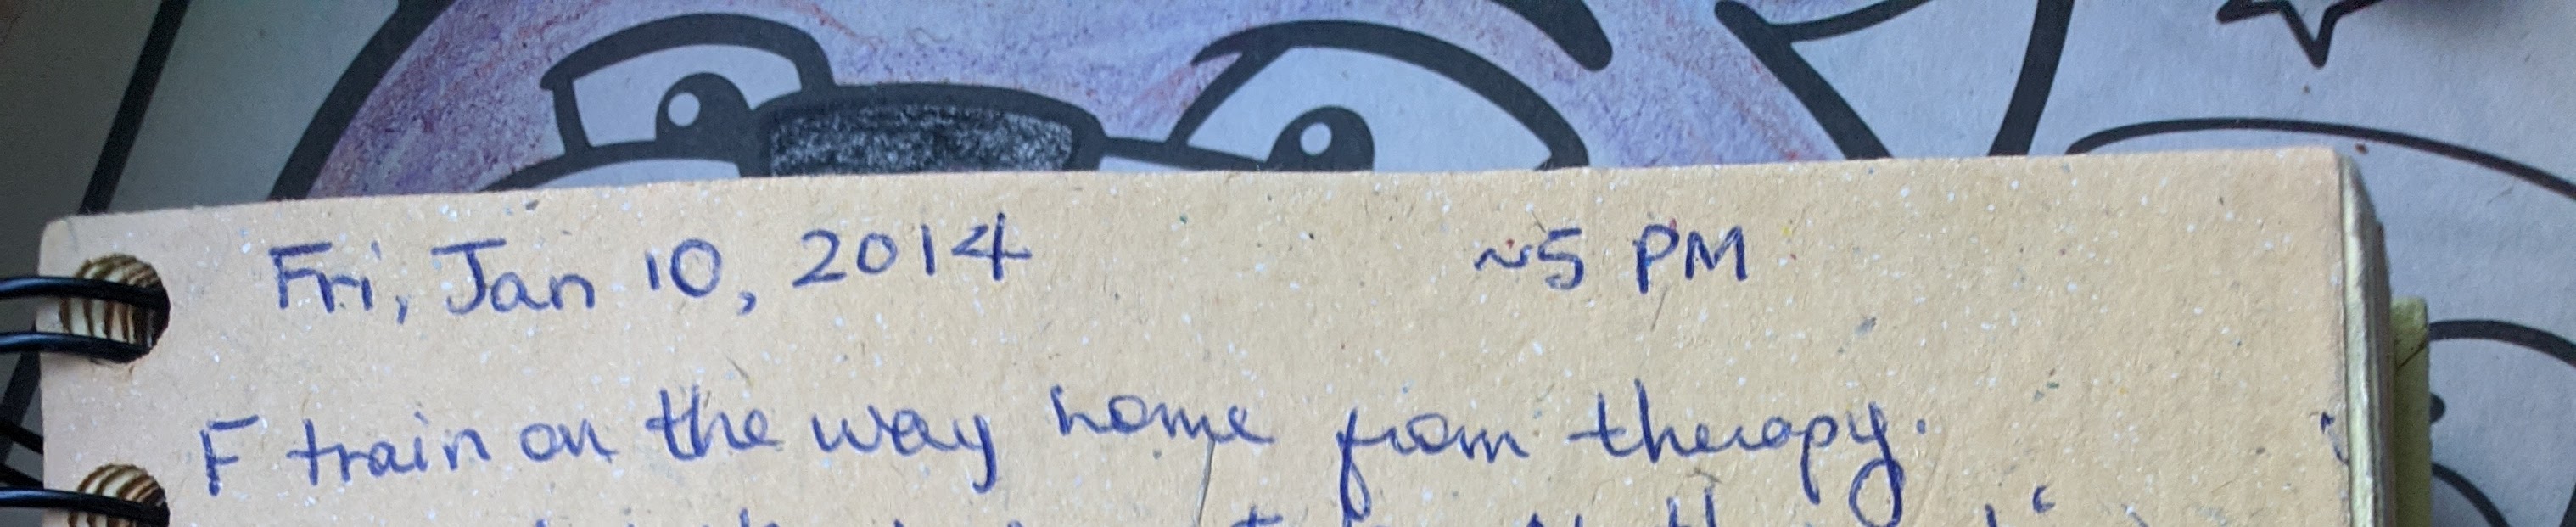 Fri, Jan 10, 2014 ~5 PM
F train on the way home from therapy.